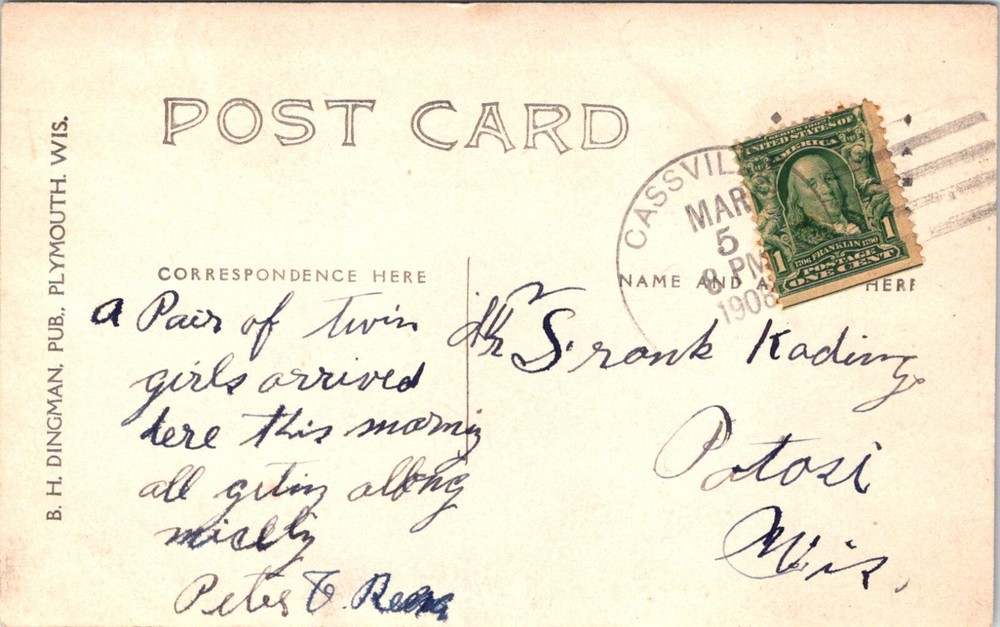 POST CARD
B. H. DINGMAN, PUB., PLYMOUTH. WIS.
CASSVIL
MAR
5
8 PM
1908
SERIES 1902
UNITED STATES OF
AMERICA
1706 FRANKLIN 1790
1 POSTAGE 1
ONE CENT
CORRESPONDENCE HERE
NAME AND A HERE
a Pair of twin
girls arrived
here this morning
all geting allong
nicely
Peter
Mr Frank Kading
Potosi
Wis.